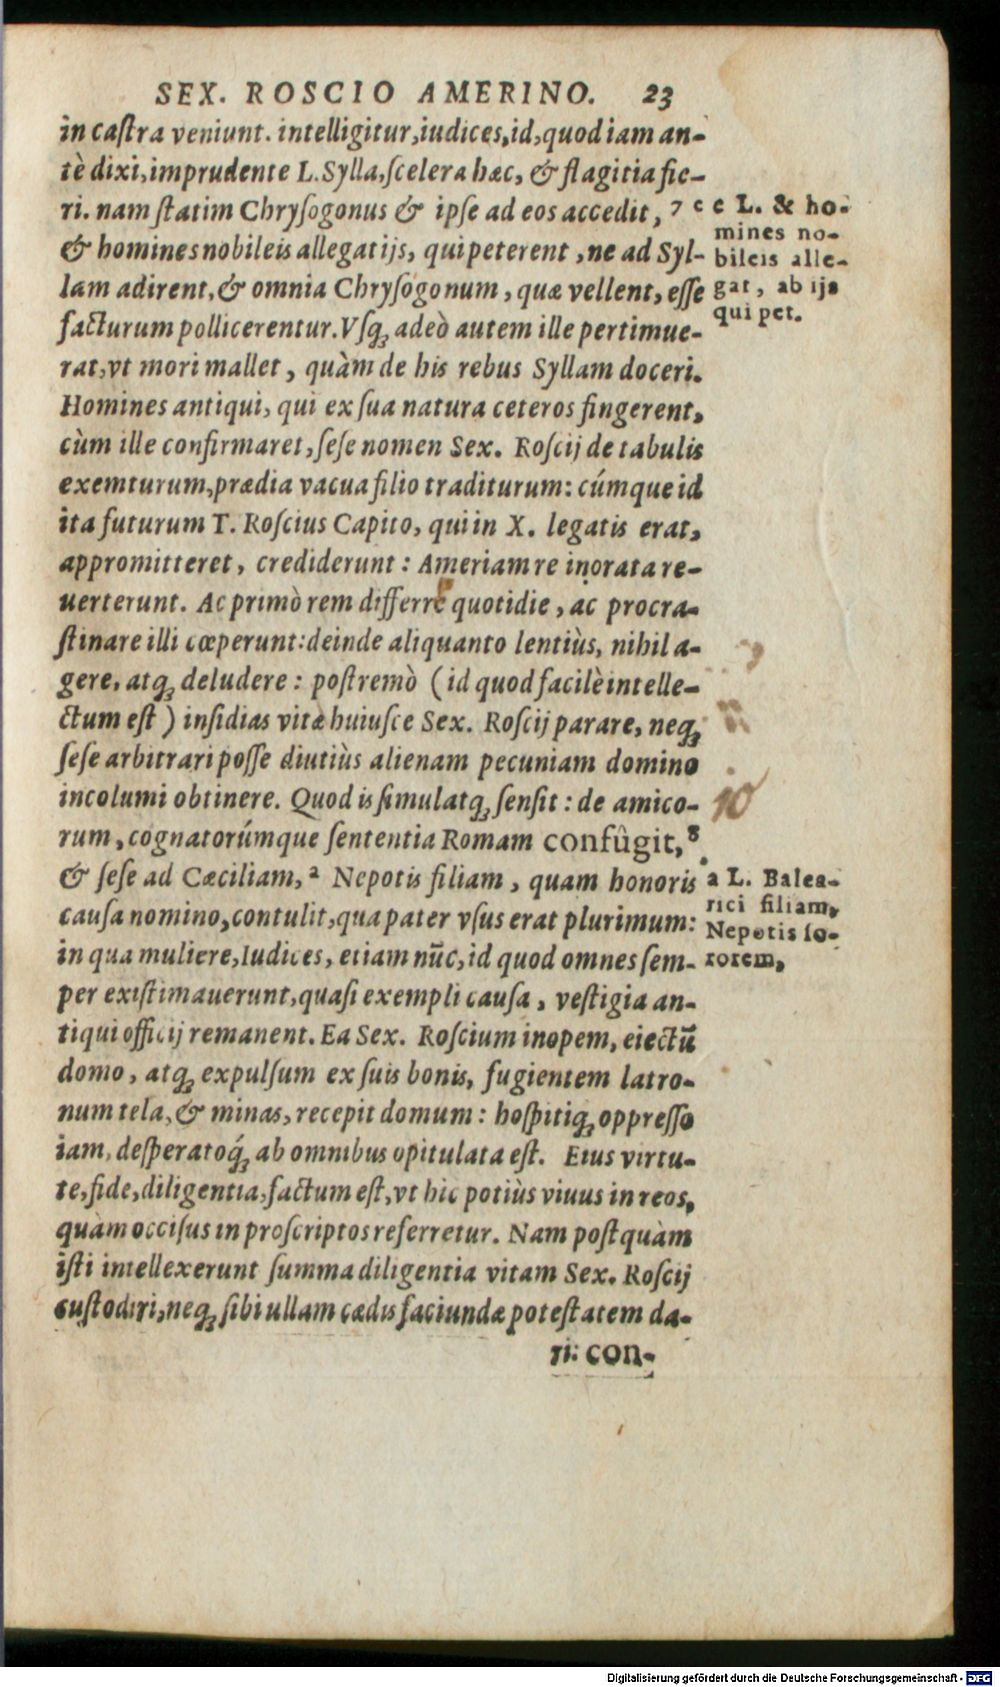 SEX. ROSCIO AMERINO. 23
in caſtra veniunt. intelligitur, iudices, id, quod iam an-
tè dixi, imprudente L. Sylla, ſcelera hæc, & flagitia fie-
ri. nam ſtatim Chryſogonus & ipſe ad eos accedit, 7 c
& homines nobileis allegat ijs, qui peterent, ne ad Syl-
lam adirent, & omnia Chryſogonum, quæ vellent, eſſe
facturum pollicerentur. Vſq; adeò autem ille pertimue-
rat, vt mori mallet, quàm de his rebus Syllam doceri.
Homines antiqui, qui ex ſua natura ceteros fingerent,
cùm ille confirmaret, ſeſe nomen Sex. Roſcij de tabulis
exemturum, prædia vacua filio traditurum: cúmque id
ita futurum T. Roſcius Capito, qui in X. legatis erat,
appromitteret, crediderunt: Ameriam re inorata re-
uerterunt. Ac primò rem differre quotidie, ac procra-
ſtinare illi cœperunt: deinde aliquanto lentiùs, nihil a-
gere, atq; deludere: poſtremò (id quod facilè intelle-
ctum eſt) inſidias vitæ huiuſce Sex. Roſcij parare, neq;
ſeſe arbitrari poſſe diutiùs alienam pecuniam domino
incolumi obtinere. Quod is ſimulatq; ſenſit: de amico-
rum, cognatorúmque ſententia Romam confûgit, 8
& ſeſe ad Cæciliam, a Nepotis filiam, quam honoris
cauſa nomino, contulit, qua pater vſus erat plurimum:
in qua muliere, Iudices, etiam nūc, id quod omnes ſem-
per exiſtimauerunt, quaſi exempli cauſa, veſtigia an-
tiqui officij remanent. Ea Sex. Roſcium inopem, eiectū
domo, atq; expulſum ex ſuis bonis, fugientem latro-
num tela, & minas, recepit domum: hoſpitiq; oppreſſo
iam, deſperatoq́; ab omnibus opitulata eſt. Eius virtu-
te, fide, diligentia, factum eſt, vt hic potiùs viuus in reos,
quàm occiſus in proſcriptos referretur. Nam poſtquàm
iſti intellexerunt ſumma diligentia vitam Sex. Roſcij
cuſtodiri, neq; ſibi ullam cædis faciundæ poteſtatem da-
ri: con-
c L. & ho-
mines no-
bileis alle-
gat, ab ijs
qui pet.
10
a L. Balea-
rici filiam,
Nepotis ſo-
rorem,
Digitalisierung gefördert durch die Deutsche Forschungsgemeinschaft - DFG